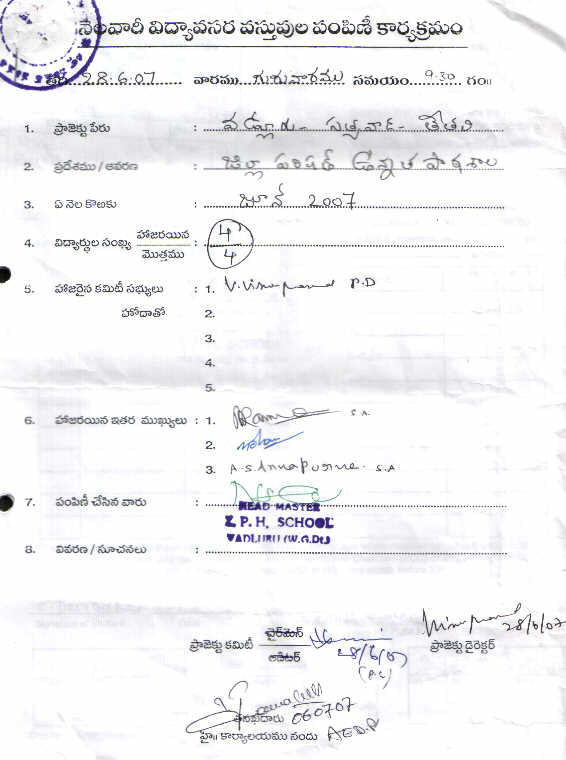 నెలవారీ విద్యావసర వస్తువుల పంపిణీ కార్యక్రమం
తేది 28.6.07 వారము గురువారము సమయం 9.30 గం॥
1. ప్రాజెక్టు పేరు : వడ్లూరు - సత్యవాడ - తేతలి
2. ప్రదేశము / ఆవరణ : జిల్లా పరిషత్ ఉన్నత పాఠశాల
3. ఏ నెల కొఱకు : జూన్ 2007
4. విద్యార్థుల సంఖ్య హాజరయిన / మొత్తము : 4 / 4
5. హాజరైన కమిటీ సభ్యులు : 1. P.D
హోదాతో 2.
3.
4.
5.
6. హాజరయిన ఇతర ముఖ్యులు : 1. S.A.
2.
3. A.S. Annapurna. S.A
7. పంపిణీ చేసిన వారు :
HEAD MASTER
Z. P. H. SCHOOL
VADLURU (W.G.Dt.)
8. వివరణ / సూచనలు :
28/6/07
ప్రాజెక్టు కమిటీ ఛైర్మెన్ / ఆడిటర్ 28/6/07 ప్రాజెక్టు డైరెక్టర్
(P.C)
తనఖీదారు 060707
హై॥ కార్యాలయము నందు AEDP